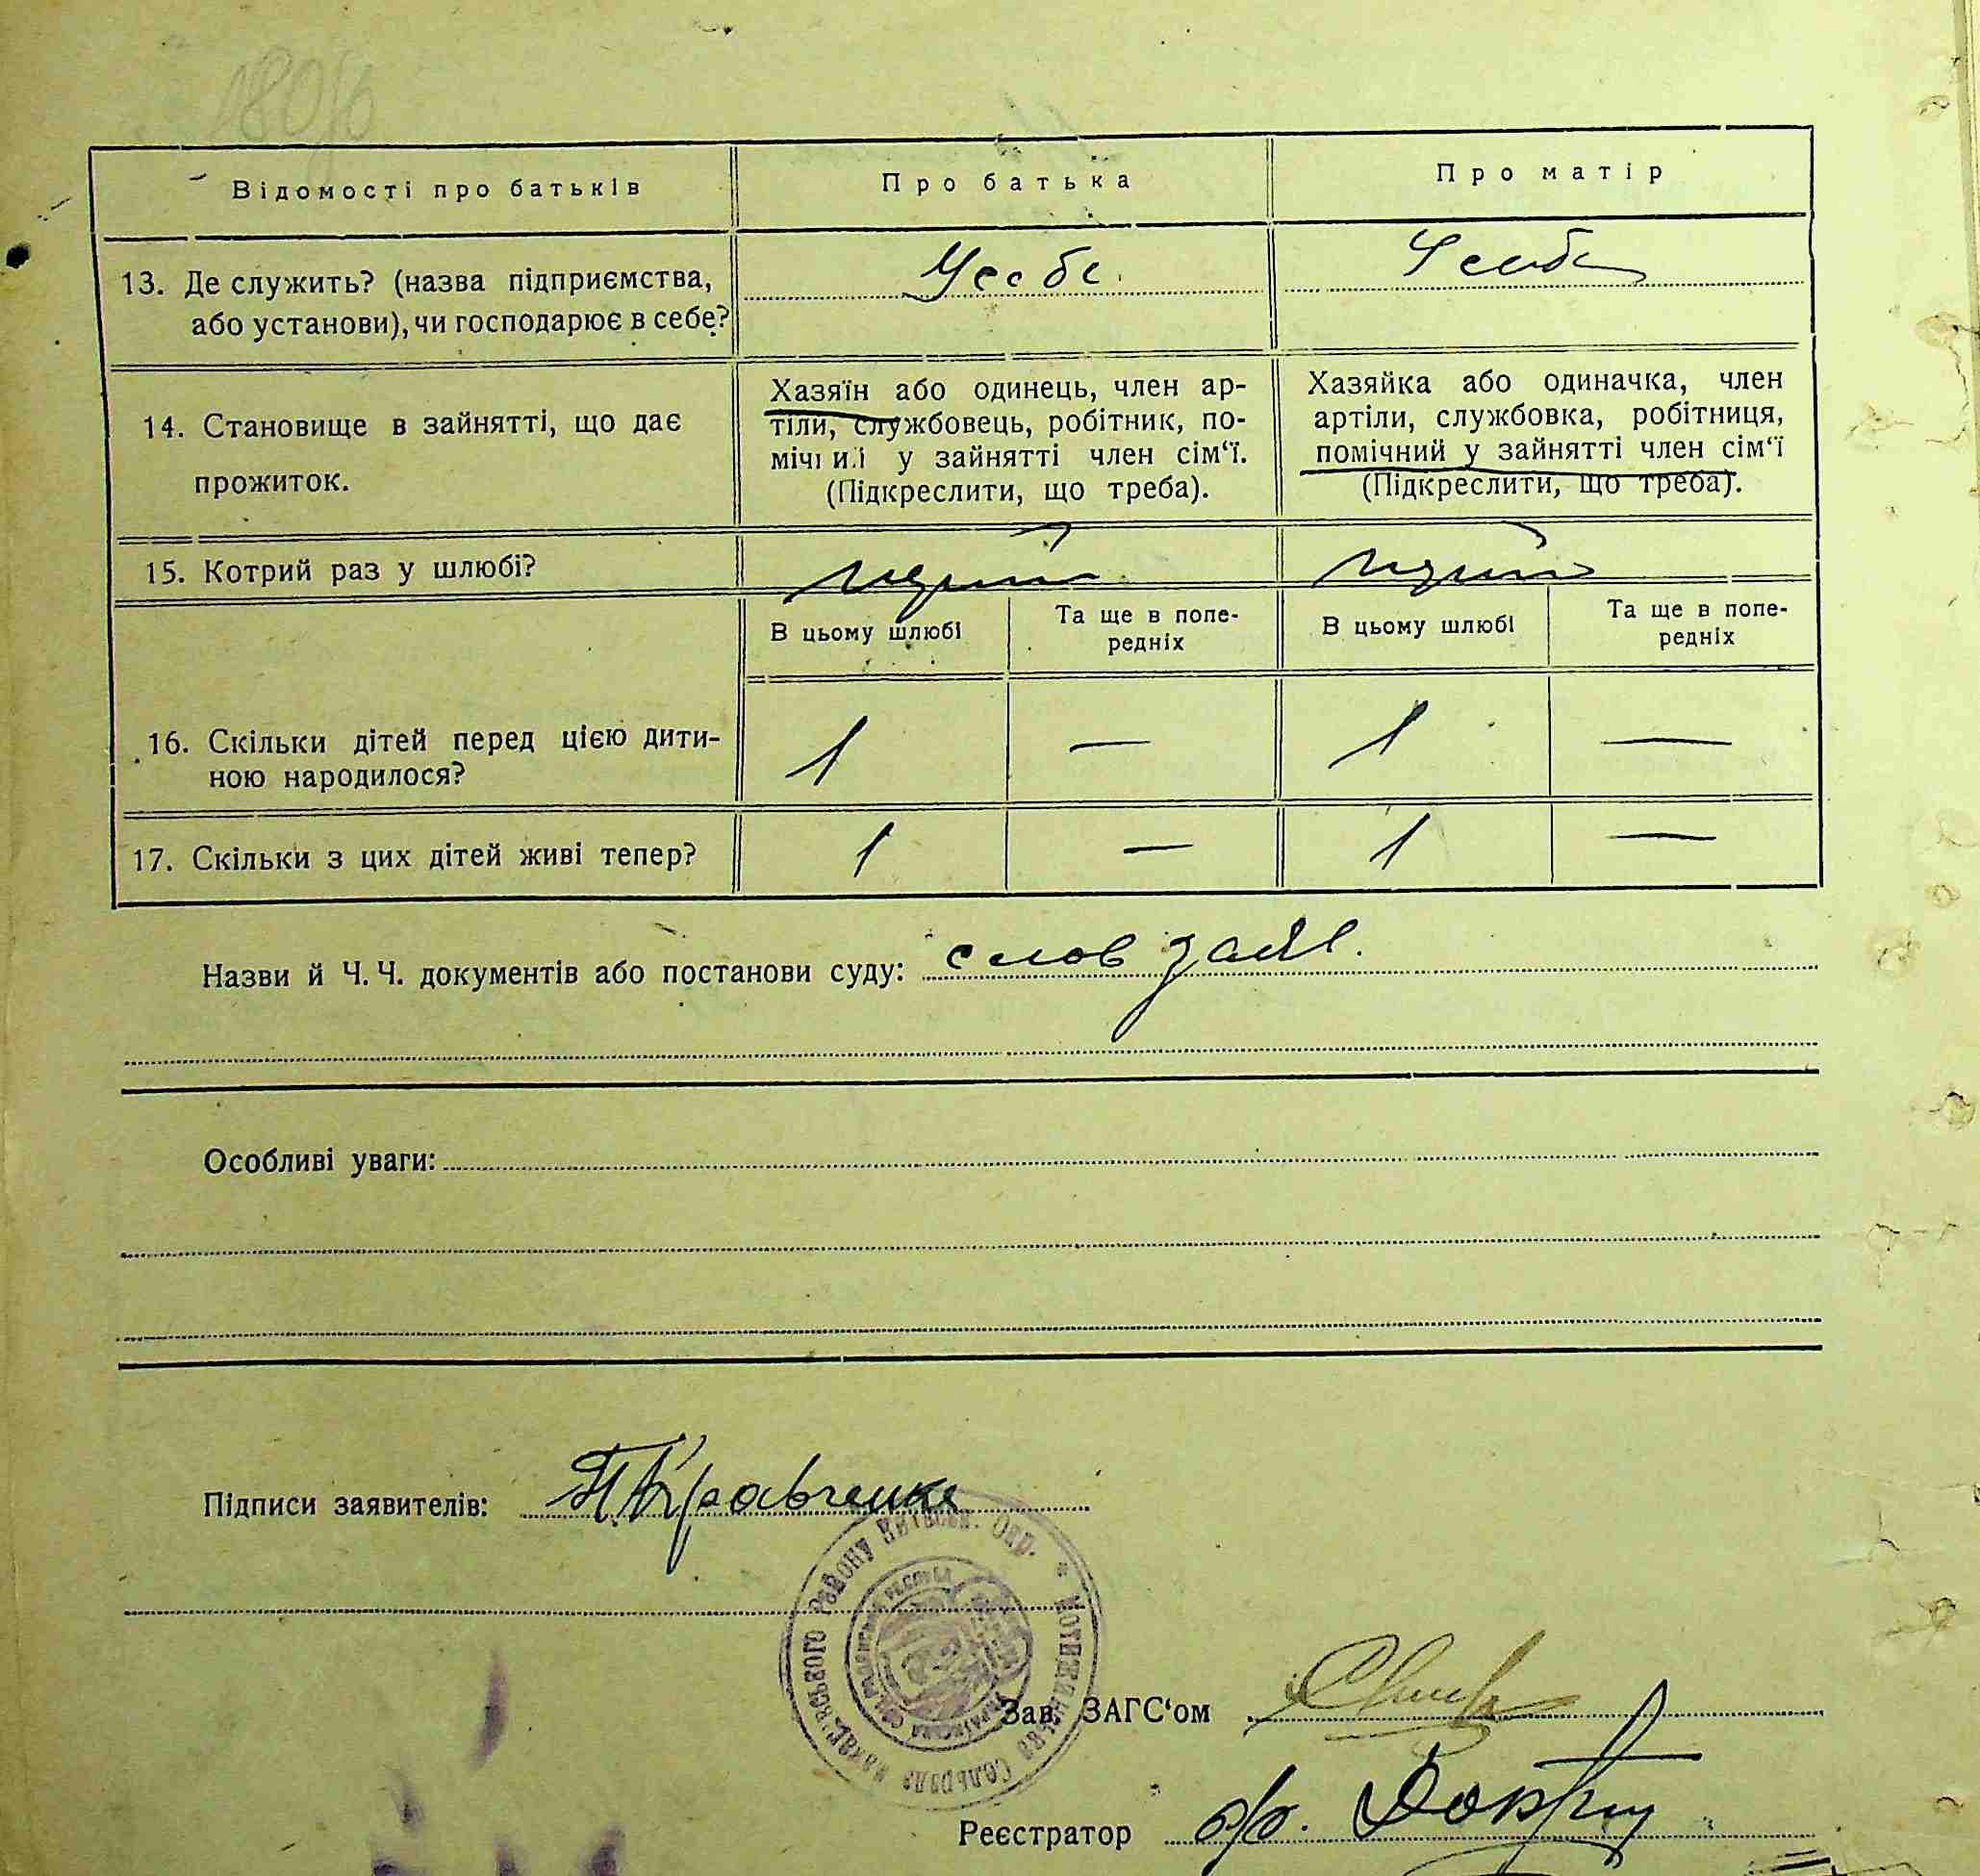 Відомості про батьків
Про батька
Про матір
13. Де служить? (назва підприємства,
або установи), чи господарює в себе?
У себе
У себе
14. Становище в зайнятті, що дає
прожиток.
Хазяїн або одинець, член ар-
тіли, службовець, робітник, по-
мічний у зайнятті член сім‘ї.
(Підкреслити, що треба).
Хазяйка або одиначка, член
артіли, службовка, робітниця,
помічний у зайнятті член сім‘ї
(Підкреслити, що треба).
15. Котрий раз у шлюбі?
В цьому шлюбі
Та ще в попе-
редніх
В цьому шлюбі
Та ще в попе-
редніх
16. Скільки дітей перед цією дити-
ною народилося?
1 — 1 —
17. Скільки з цих дітей живі тепер?
1 — 1 —
Назви й Ч. Ч. документів або постанови суду: слов заяв.
Особливі уваги:
Підписи заявителів: Кравченко
району Київськ. Окр. Мотижинська Сільрада Макарівського
Зав. ЗАГС‘ом
Реєстратор